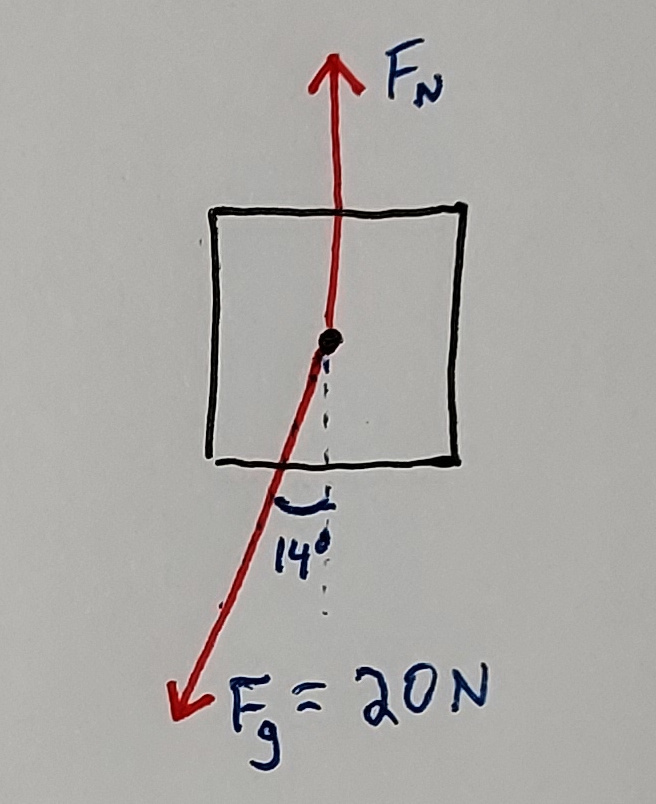 F_N
14°
F_g = 20N